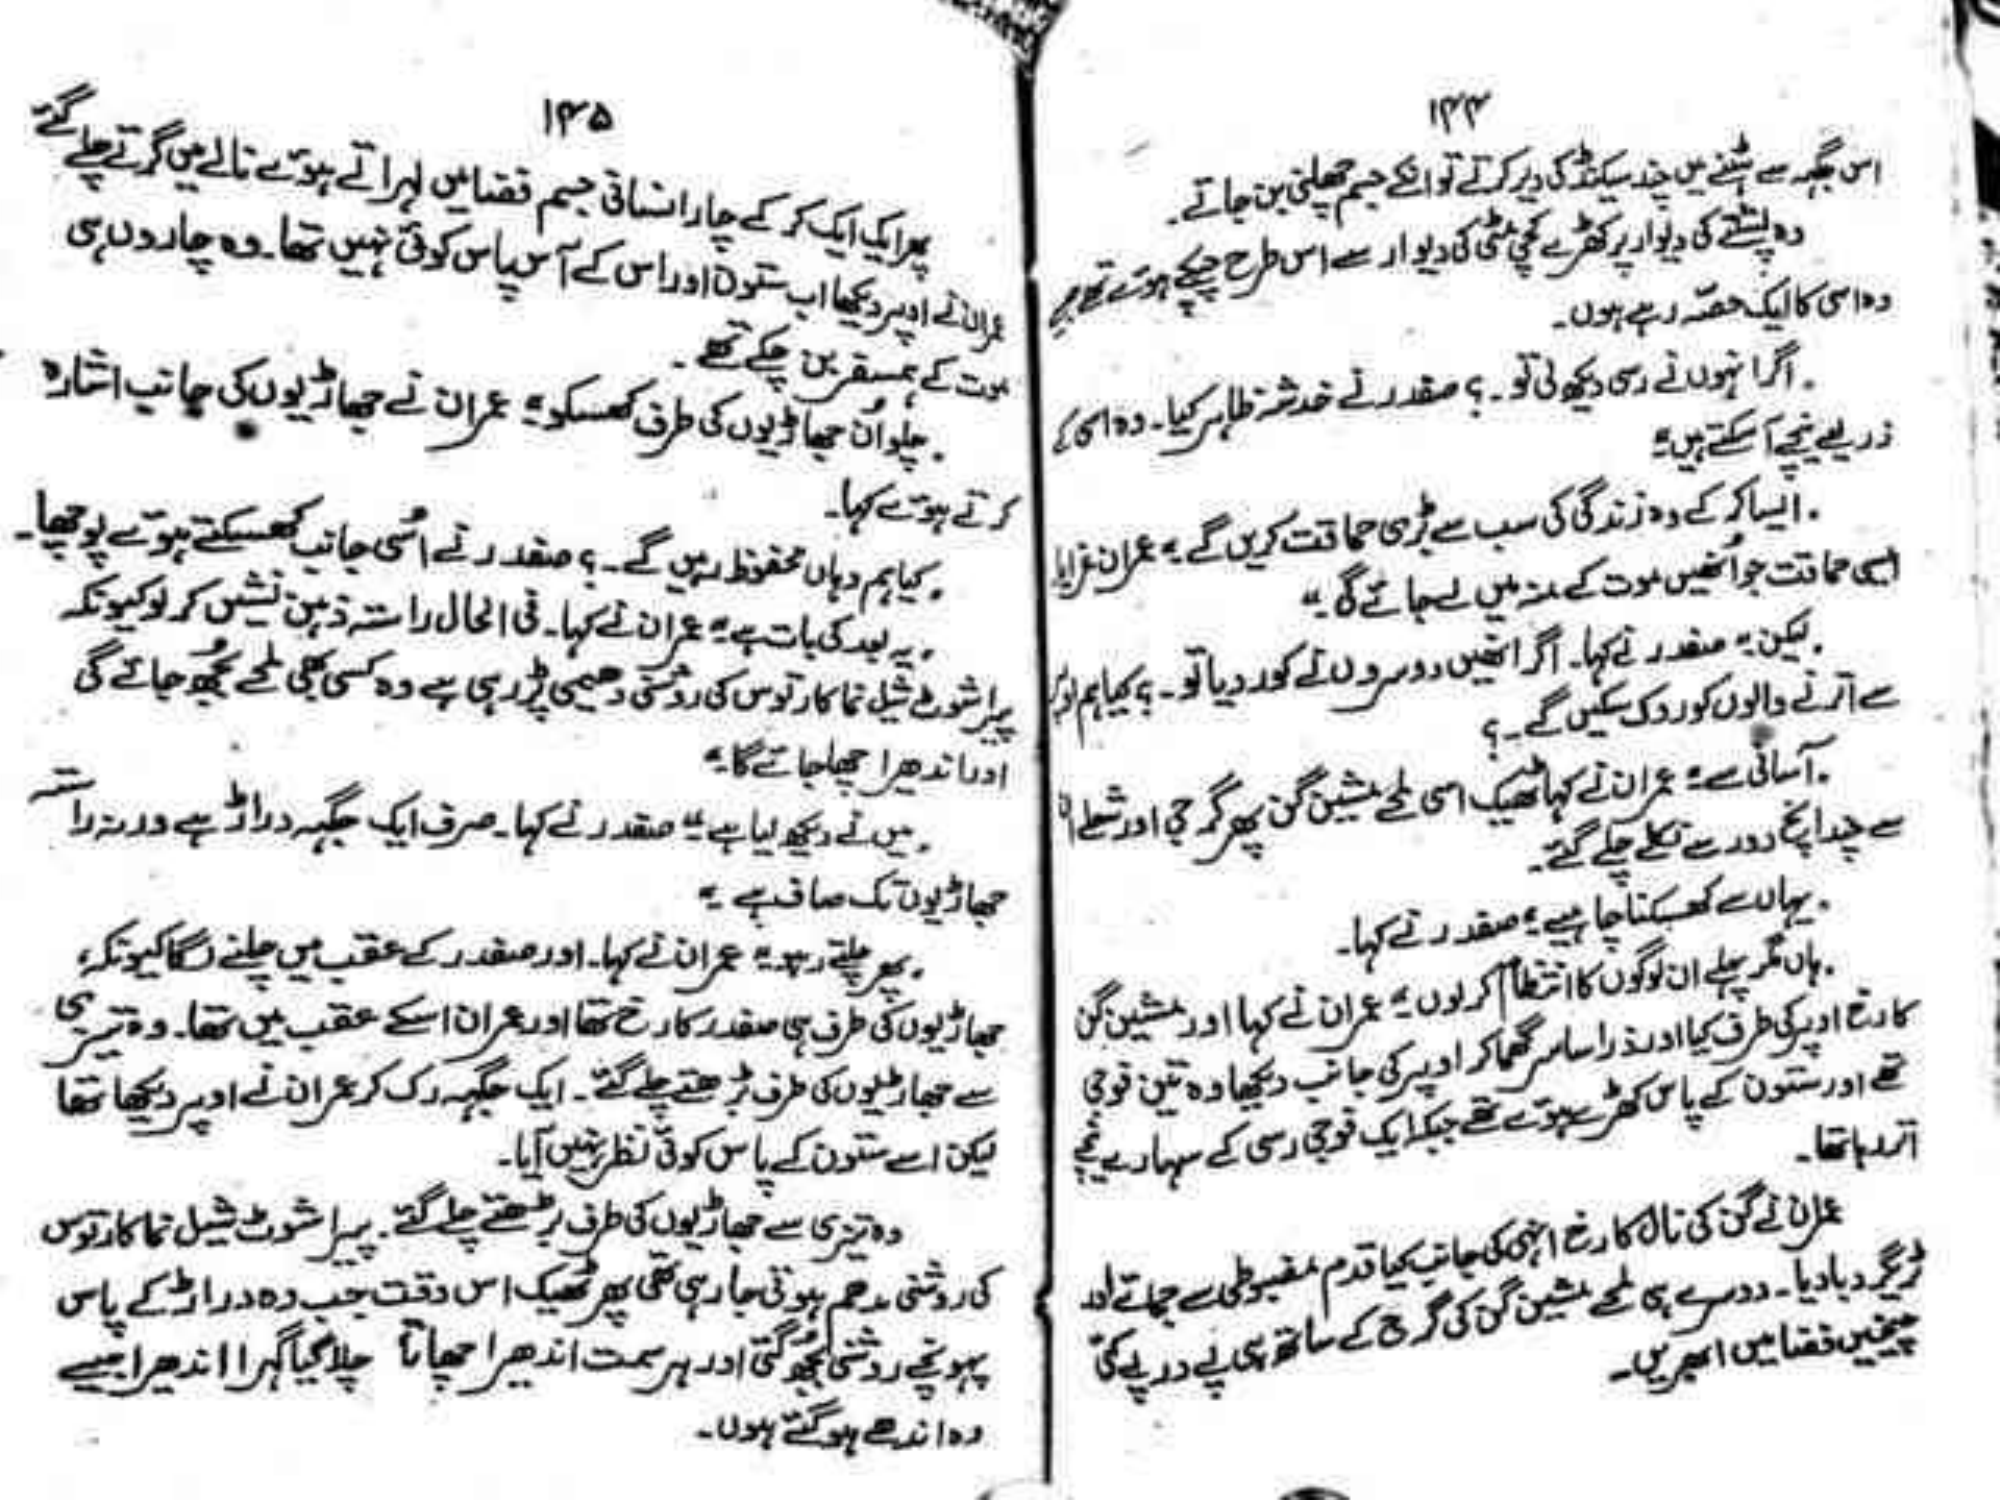 ۱۴۴
اس جگہہ سے ہٹنے میں چند سیکنڈ کی دیر کرتے تو انکے جسم چھلنی بن جاتے۔
وہ پشتے کی دیوار پر کھڑے کچی مٹی کی دیوار سے اس طرح چپکے ہوتے تھے جیسے
وہ اسی کا ایک حصہ رہے ہوں۔
۔ اگر انہوں نے رسی دیکھ لی تو۔ ؟ صفدر نے خدشہ ظاہر کیا۔ وہ اسی کے
ذریعے نیچے آ سکتے ہیں"
۔ ایسا کر کے وہ زندگی کی سب سے بڑی حماقت کریں گے۔" عمران غرایا
ایسی حماقت جو اُنھیں موت کے منہ میں لے جائے گی۔"
۔ لیکن۔" صفدر نے کہا۔ اگر انھیں دوسروں نے کور دیا تو۔ ؟ کیا ہم اوپر
سے اترنے والوں کو روک سکیں گے۔ ؟
۔ آسانی سے۔" عمران نے کہا ٹھیک اسی لمحے مشین گن پھر گرجی اور شعلے ان
سے چند اِنچ دور سے نکلے چلے گئے۔
۔ یہاں سے کھسکنا چاہیے۔" صفدر نے کہا۔
۔ ہاں مگر پہلے ان لوگوں کا انتظام کر لوں۔" عمران نے کہا اور مشین گن
کا رخ اوپر کی طرف کیا اور ذرا سا سر گھما کر اوپر کی جانب دیکھا وہ تین فوجی
تھے اور ستون کے پاس کھڑے ہوتے تھے جبکہ ایک فوجی رسی کے سہارے نیچے
اتر رہا تھا۔
عمران نے گن کی نال کا رخ انہی کی جانب کیا قدم مضبوطی سے جماتے اور
ٹریگر دبا دیا۔ دوسرے ہی لمحے مشین گن کی گرج کے ساتھ ہی پے در پے کئی
چیخیں فضا میں ابھریں۔
۱۴۵
پھر ایک ایک کر کے چار انسانی جسم فضا میں لہراتے ہوتے نالے میں گرتے چلے گئے
عمران نے اوپر دیکھا اب ستون اور اس کے آس پاس کوئی نہیں تھا۔ وہ چاروں ہی
موت کے ہمسفر بن چکے تھے۔
۔ چلو اُن جھاڑیوں کی طرف کھسکو۔" عمران نے جھاڑیوں کی جانب اشارہ
کرتے ہوتے کہا۔
۔ کیا ہم وہاں محفوظ رہیں گے۔ ؟ صفدر نے اُسی جانب کھسکتے ہوتے پوچھا۔
۔ یہ بعد کی بات ہے۔" عمران نے کہا۔ فی الحال راستہ ذہن نشیں کر لو کیونکہ
پیراشوٹ شیل نما کارتوس کی روشنی دھیمی پڑ رہی ہے وہ کسی بھی لمحے بُجھ جائے گی
اور اندھیرا چھا جائے گا۔"
۔ میں نے دیکھ لیا ہے۔" صفدر نے کہا۔ صرف ایک جگہہ دراڑ ہے ورنہ راستہ
جھاڑیوں تک صاف ہے۔"
۔ پھر چلتے رہو۔" عمران نے کہا۔ اور صفدر کے عقب میں چلنے لگا کیونکہ
جھاڑیوں کی طرف ہی صفدر کا رخ تھا اور عمران اسکے عقب میں تھا۔ وہ تیزی
سے جھاڑیوں کی طرف بڑھتے چلے گئے۔ ایک جگہہ رک کر عمران نے اوپر دیکھا تھا
لیکن اسے ستون کے پاس کوئی نظر نہیں آیا۔
وہ تیزی سے جھاڑیوں کی طرف بڑھتے چلے گئے۔ پیراشوٹ شیل نما کارتوس
کی روشنی مدھم ہوتی جا رہی تھی پھر ٹھیک اس وقت جب وہ دراڑ کے پاس
پہونچے روشنی بُجھ گئی اور ہر سمت اندھیرا چھاتا چلا گیا گہرا اندھیرا جیسے
وہ اندھے ہو گئے ہوں۔